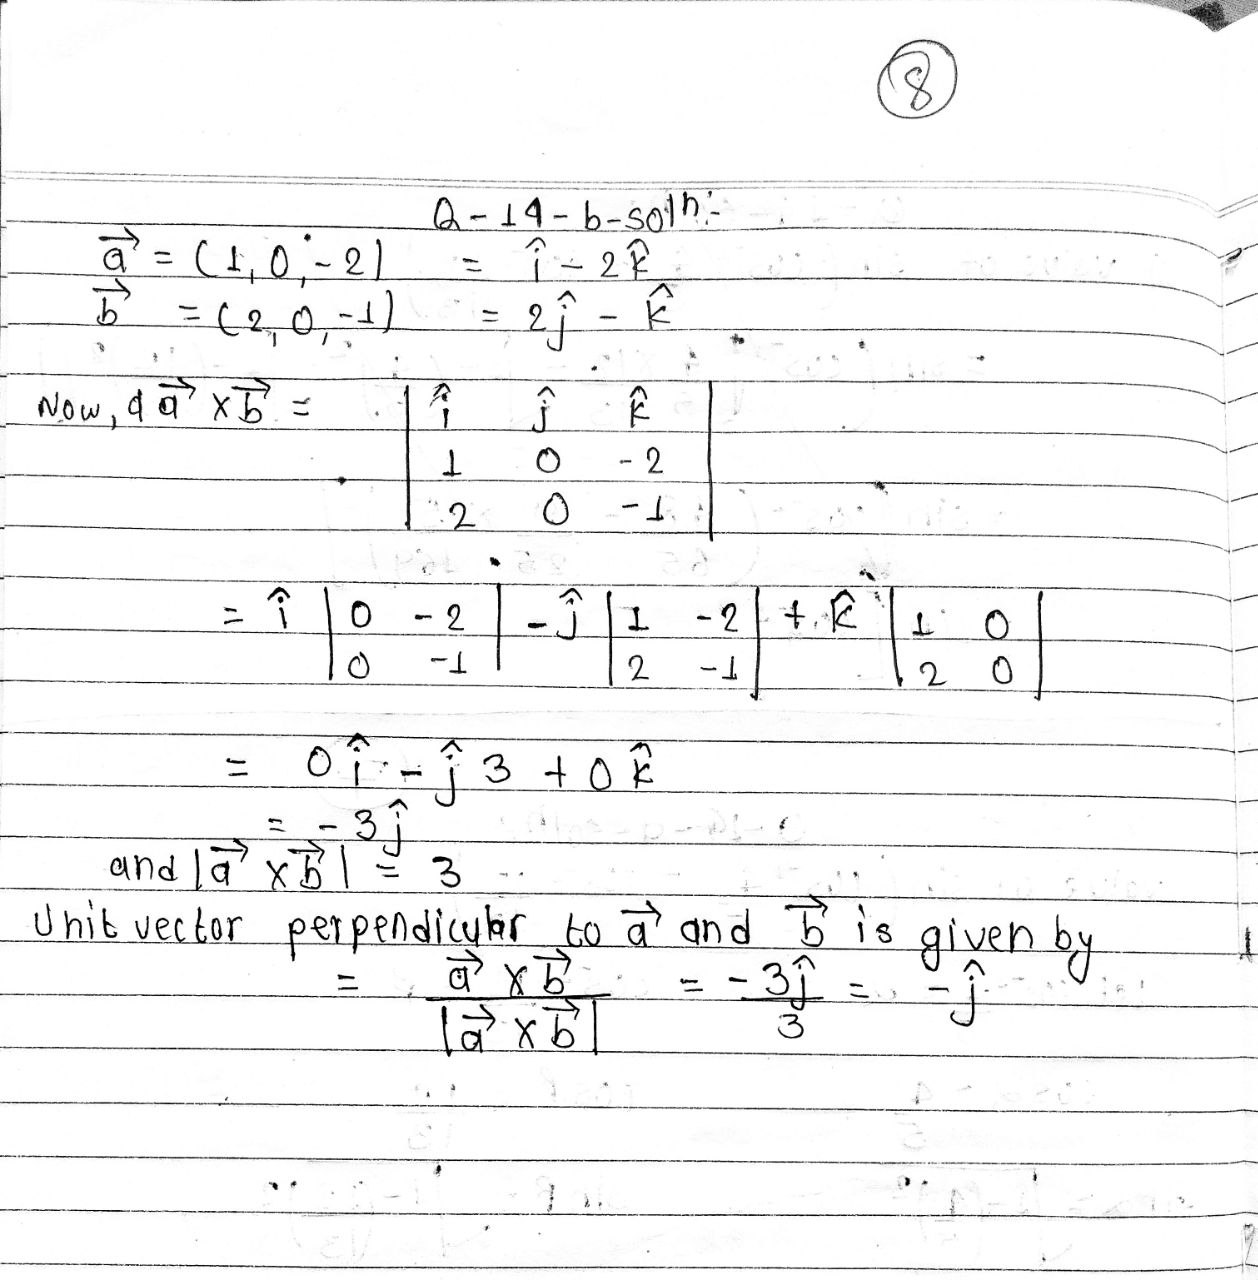 8
Q-14-b-solⁿ:-
a⃗ = (1, 0, -2) = î - 2k̂
b⃗ = (2, 0, -1) = 2ĵ - k̂
Now, a⃗ × b⃗ = | î ĵ k̂ |
| 1 0 -2 |
| 2 0 -1 |
= î | 0 -2 | - ĵ | 1 -2 | + k̂ | 1 0 |
| 0 -1 | | 2 -1 | | 2 0 |
= 0î - ĵ 3 + 0k̂
= -3ĵ
and |a⃗ × b⃗| = 3
Unit vector perpendicular to a⃗ and b⃗ is given by
= a⃗ × b⃗ / |a⃗ × b⃗| = -3ĵ / 3 = -ĵ